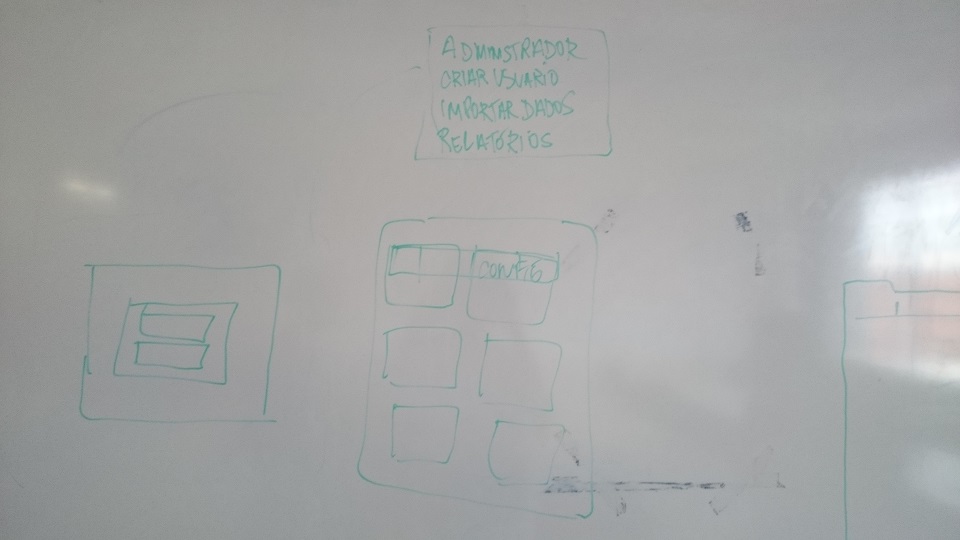 ADMINSTRADOR
CRIAR USUARIO
IMPORTAR DADOS
RELATÓRIOS
CONFIG